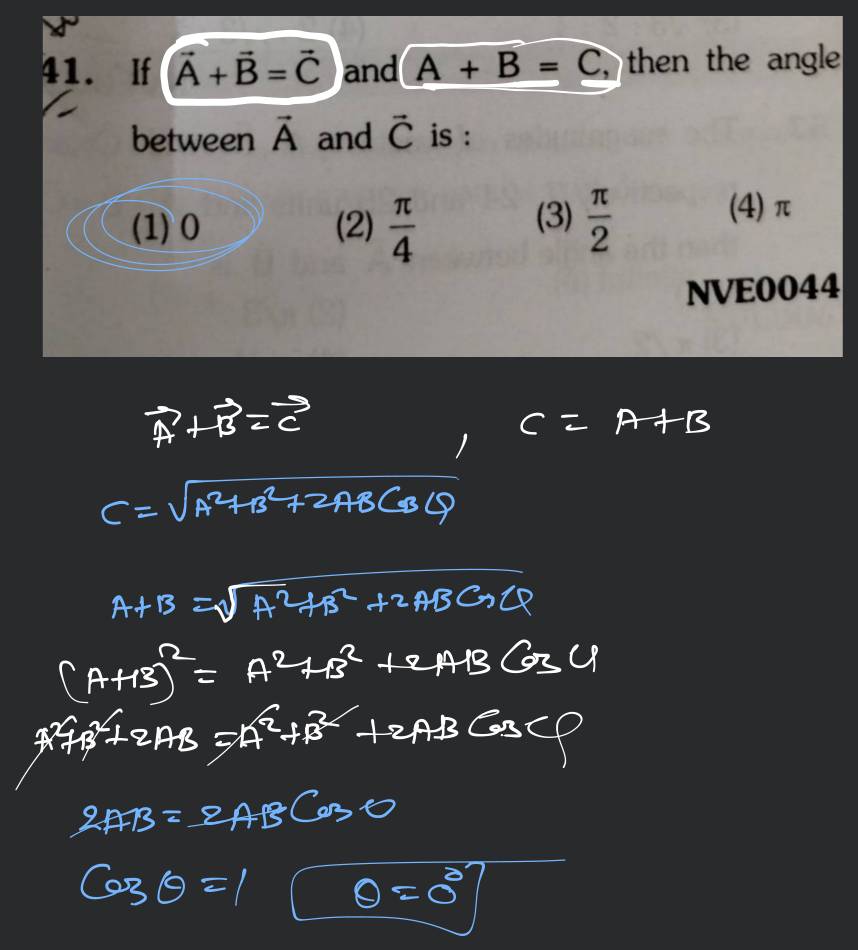 41. If A⃗ + B⃗ = C⃗ and A + B = C, then the angle
between A⃗ and C⃗ is :
(1) 0 (2) π/4 (3) π/2 (4) π
NVE0044
A⃗ + B⃗ = C⃗ , C = A + B
C = √A²+B²+2AB Cos φ
A+B = √A²+B²+2AB Cos φ
(A+B)² = A²+B²+2AB Cos φ
A²+B²+2AB = A²+B²+2AB Cos φ
2AB = 2AB Cos θ
Cos θ = 1 θ = 0°